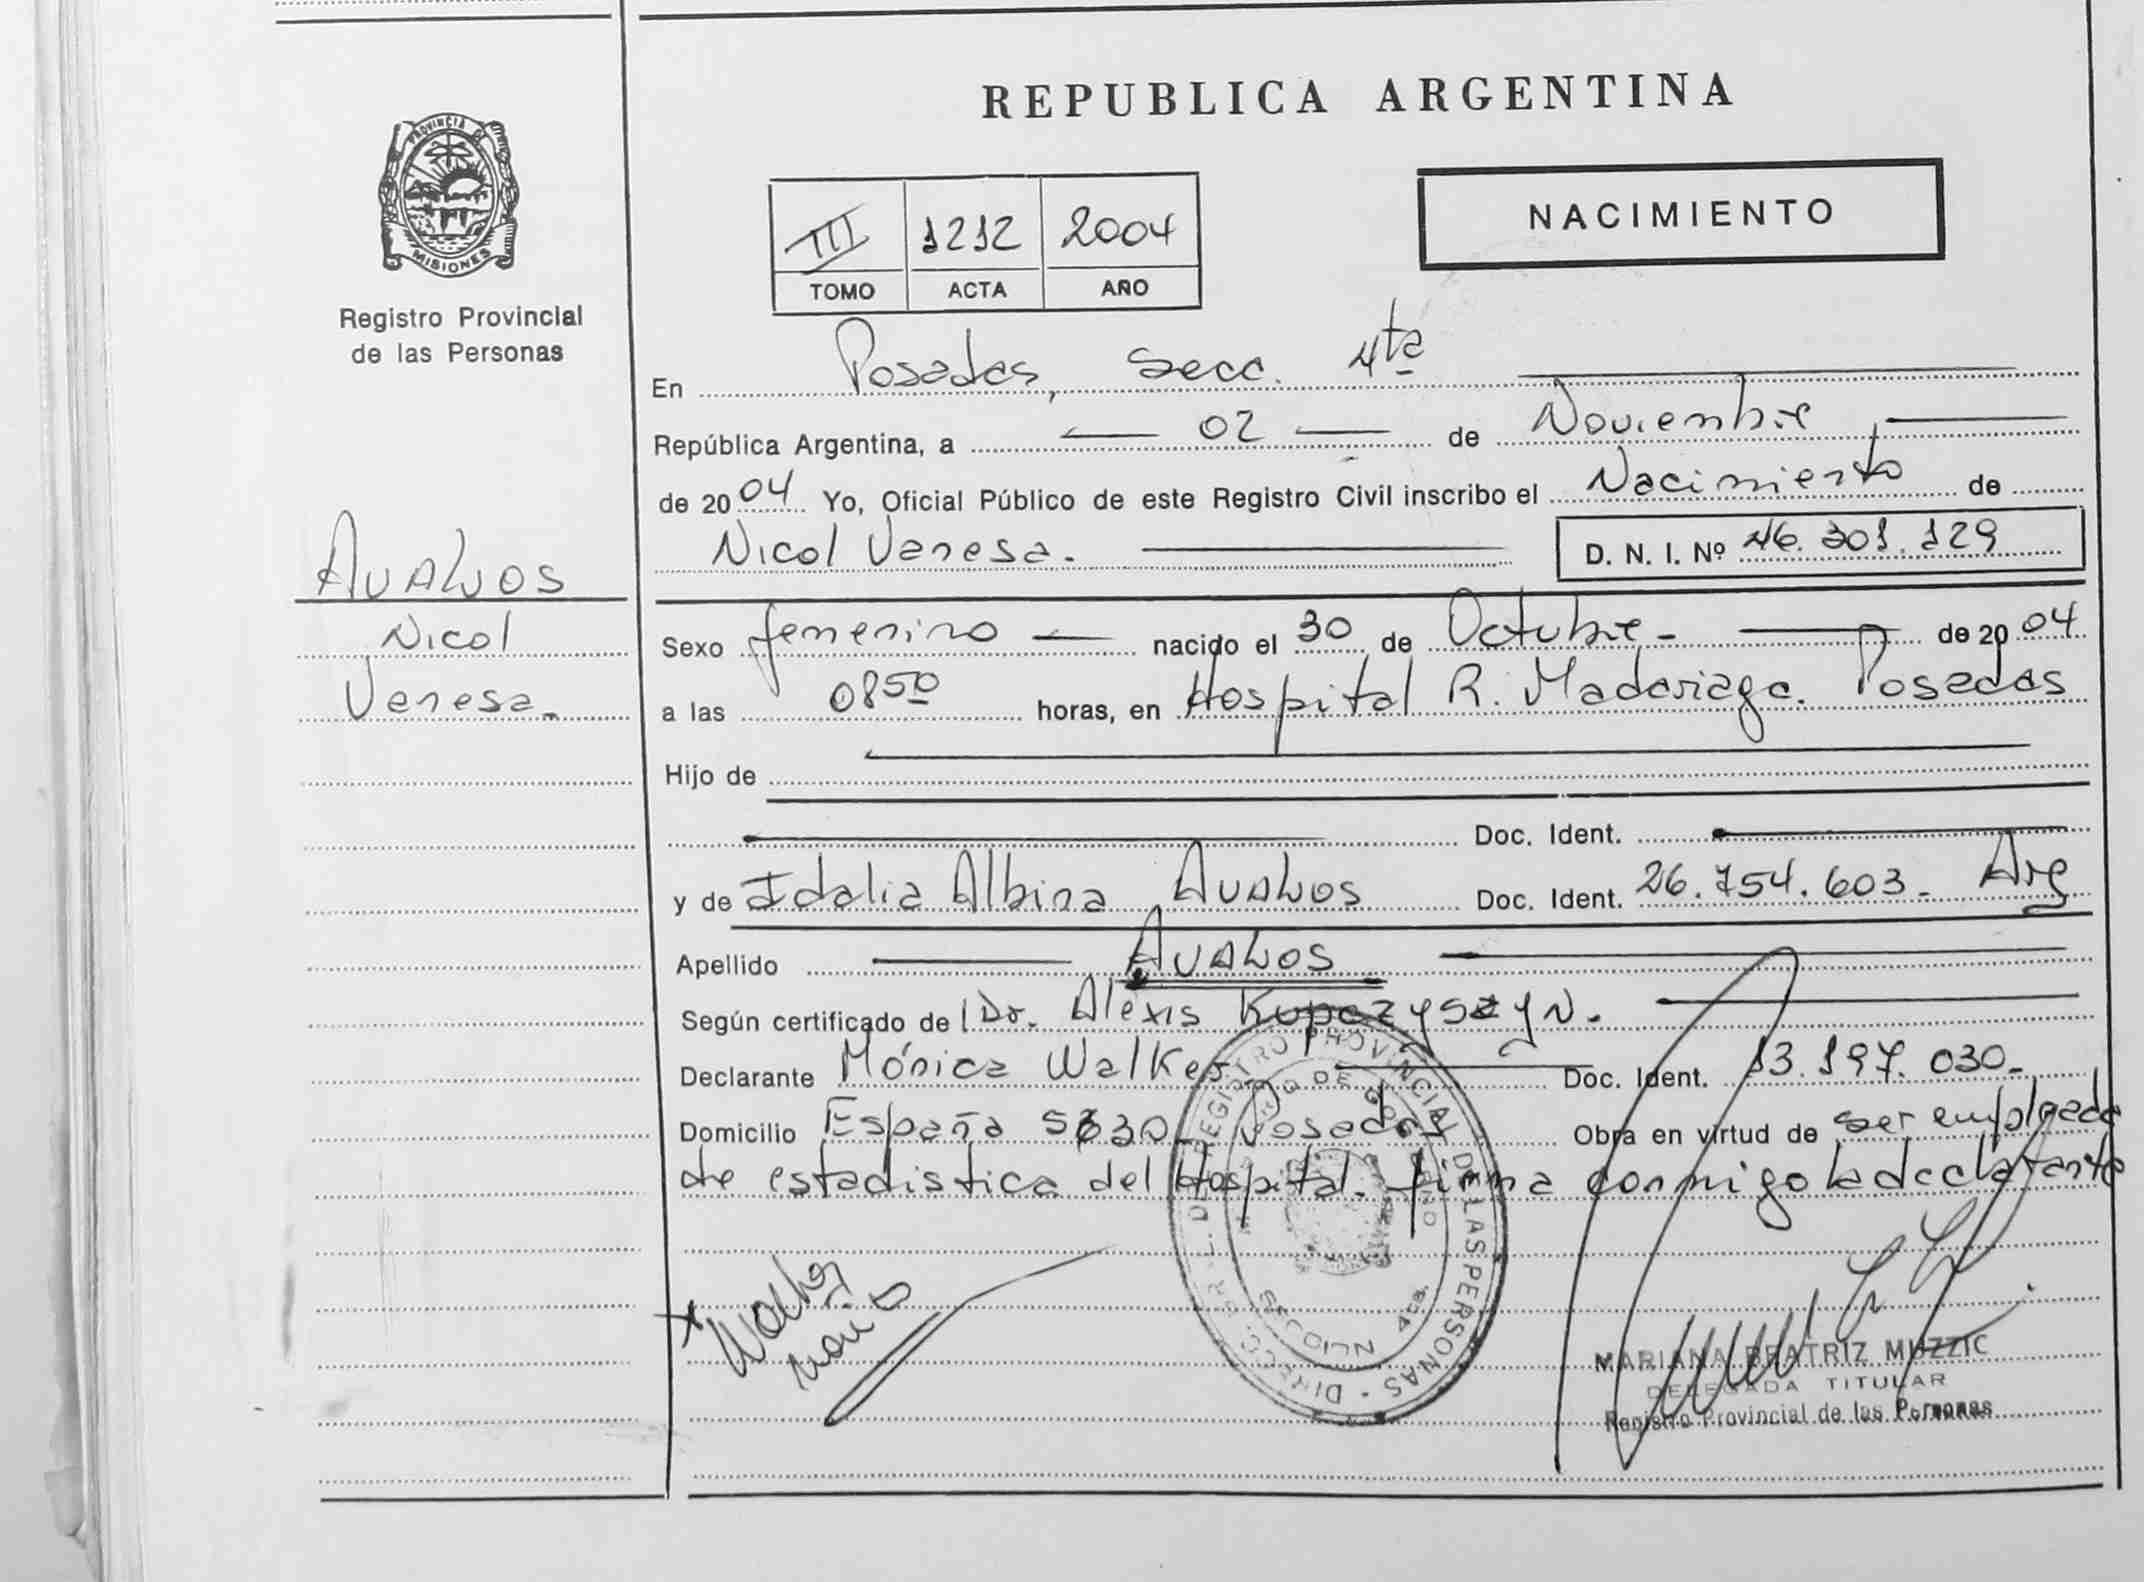 REPUBLICA ARGENTINA
PROVINCIA DE MISIONES
Registro Provincial
de las Personas
NACIMIENTO
III 1212 2004
TOMO ACTA AÑO
En Posadas, Secc. 4ta
República Argentina, a 02 de Noviembre
de 2004 Yo, Oficial Público de este Registro Civil inscribo el Nacimiento de
Nicol Vanesa. D. N. I. Nº 46.301.129
AVALOS
Nicol
Vanesa.
Sexo femenino nacido el 30 de Octubre de 2004
a las 0850 horas, en Hospital R. Madariaga. Posadas
Hijo de
Doc. Ident.
y de Idalia Albina AVALOS Doc. Ident. 26.754.603. Arg
Apellido AVALOS
Según certificado de Dr. Alexis
Declarante Mónica Walker Doc. Ident. 13.197.030.
Domicilio España Posadas Obra en virtud de ser empleada
de estadistica del Hospital. firma conmigo la declarante
DIRECC. PROVINCIAL DE LAS PERSONAS
SECCION 4ta.
MARIANA BEATRIZ MUZZIC
DELEGADA TITULAR
Registro Provincial de las Personas